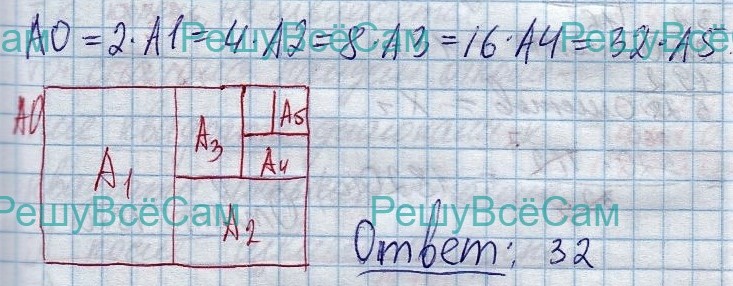 A0 = 2·A1 = 4·A2 = 8·A3 = 16·A4 = 32·A5
РешуВсёСам
A0
A1
A3
A5
A4
A2
РешуВсёСам
РешуВсёСам
Ответ: 32